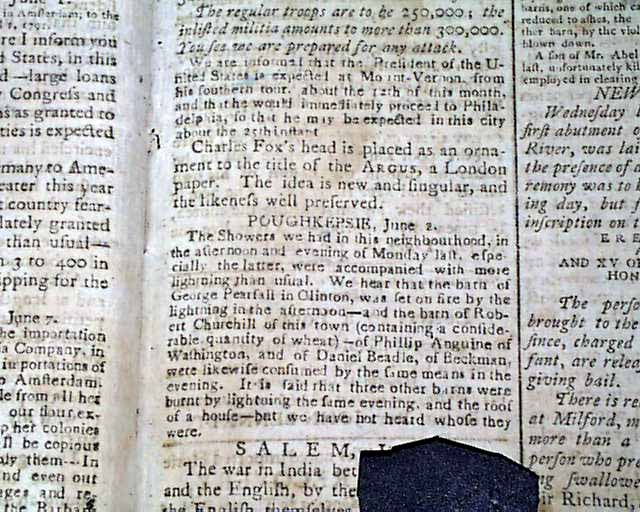 in Amsterdam, to the
re I inform you
d States, in this
d—large loans
y Congreſs and
ns as granted to
ties is expected
many to Ame-
eater this year
t country fear-
lately granted
than usual—
n 3 to 400 in
ipping for the
June 7.
he importation
ia Company, in
portations of
Amsterdam.
le from all her
our flour, ex-
p her colonies
ll be copious
them—In
nd even out
ages and re-
the Barba
The regular troops are to be 250,000; the
inliſted militia amounts to more than 300,000.
You ſee we are prepared for any attack.
We are informed that the Preſident of the U-
nited States is expected at Mount-Vernon, from
his ſouthern tour, about the 12th of this month,
and that he would immediately proceed to Phila-
delphia, ſo that he may be expected in this city
about the 25th inſtant
Charles Fox's head is placed as an orna-
ment to the title of the ARGUS, a London
paper. The idea is new and ſingular, and
the likeneſs well preſerved.
POUGHKEPSIE, June 2.
The Showers we had in this neighbourhood, in
the afternoon and evening of Monday laſt, eſpe-
cially the latter, were accompanied with more
lightning than uſual. We hear that the barn of
George Pearſall in Clinton, was ſet on fire by the
lightning in the afternoon—and the barn of Rob-
ert Churchill of this town (containing a conſide-
rable quantity of wheat)—of Phillip Anguine of
Waſhington, and of Daniel Beadle, of Beekman,
were likewiſe conſumed by the ſame means in the
evening. It is ſaid that three other barns were
burnt by lightning the ſame evening, and the roof
of a houſe—but we have not heard whoſe they
were.
SALEM,
The war in India bet
and the Engliſh, by the
the Engliſh themſelves
barns, one of which
reduced to aſhes, the
ther barn, by the viol
blown down.
A ſon of Mr. Abel
laſt, unfortunately ki
employed in clearing
NEW
Wedneſday
firſt abutment
River, was lai
the preſence of a
remony was to
ing day, but
inſcription on t
ERE
AND XV OF
HON
The perſo
brought to the
ſince, charged
fant, are relea
giving bail.
There is re
at Milford, m
more than a
perſon who pre
ng ſwallowe
Sir Richard,